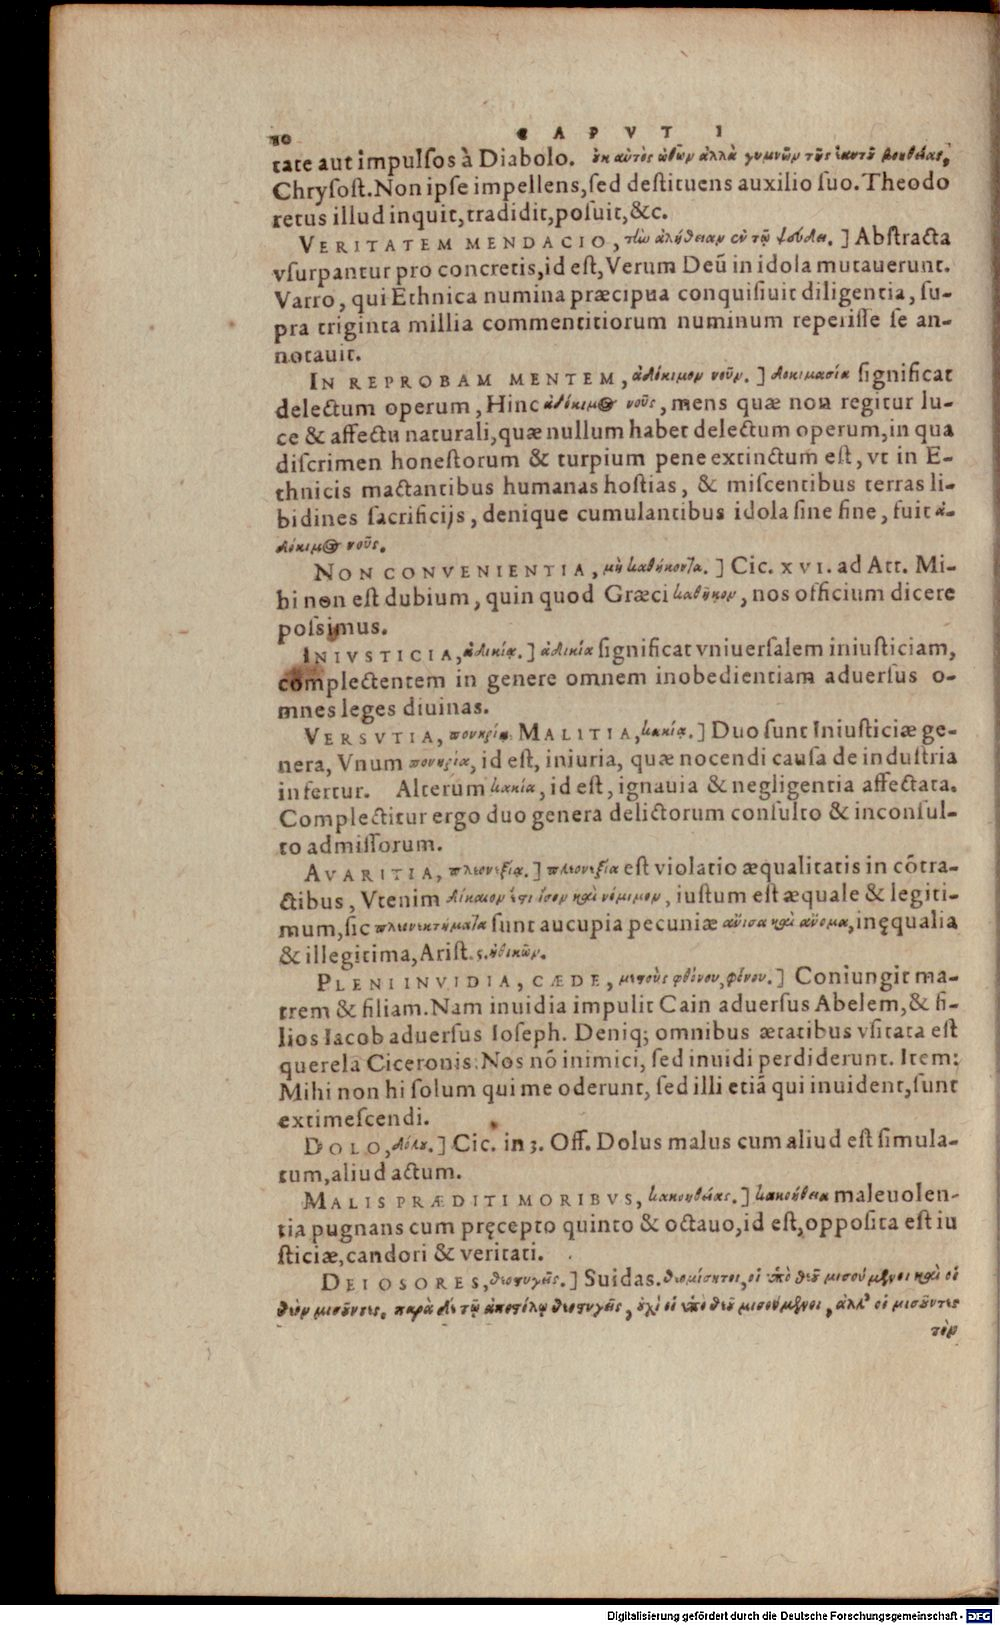 20 CAPVT I
tate aut impulſos à Diabolo. ὀυκ αὐτὸς ὠθῶν ἀλλὰ γυμνῶν τῆς ἑαυτοῦ βοηθείας,
Chryſoſt. Non ipſe impellens, ſed deſtituens auxilio ſuo. Theodo
retus illud inquit, tradidit, poſuit, &c.
VERITATEM MENDACIO, τὴν ἀλήθειαν ἐν τῷ ψεύδει.] Abſtracta
vſurpantur pro concretis, id eſt, Verum Deũ in idola mutauerunt.
Varro, qui Ethnica numina præcipua conquiſiuit diligentia, ſu-
pra triginta millia commentitiorum numinum reperiſſe ſe an-
notauit.
IN REPROBAM MENTEM, ἀδόκιμον νοῦν.] δοκιμασία ſignificat
delectum operum, Hinc ἀδόκιμος νοῦς, mens quæ non regitur lu-
ce & affectu naturali, quæ nullum habet delectum operum, in qua
diſcrimen honeſtorum & turpium pene extinctum eſt, vt in E-
thnicis mactantibus humanas hoſtias, & miſcentibus terras li-
bidines ſacrificijs, denique cumulantibus idola ſine fine, fuit ἀ-
δόκιμος νοῦς.
NON CONVENIENTIA, μὴ καθήκοντα.] Cic. XVI. ad Att. Mi-
hi non eſt dubium, quin quod Græci καθῆκον, nos officium dicere
poſsimus.
INIVSTICIA, ἀδικίᾳ.] ἀδικία ſignificat vniuerſalem iniuſticiam,
complectentem in genere omnem inobedientiam aduerſus o-
mnes leges diuinas.
VERSVTIA, πονηρίᾳ. MALITIA, κακίᾳ.] Duo ſunt Iniuſticiæ ge-
nera, Vnum πονηρία, id eſt, iniuria, quæ nocendi cauſa de induſtria
infertur. Alterum κακία, id eſt, ignauia & negligentia affectata.
Complectitur ergo duo genera delictorum conſulto & inconſul-
to admiſſorum.
AVARITIA, πλεονεξίᾳ.] πλεονεξία eſt violatio æqualitatis in cõtra-
ctibus, Vtenim δίκαιον ἐστι ἴσον καὶ νόμιμον, iuſtum eſt æquale & legiti-
mum, ſic πλεονεκτήματα ſunt aucupia pecuniæ ἄνισα καὶ ἄνομα, inęqualia
& illegitima, Ariſt. 5. ἠθικῶν.
PLENI INVIDIA, CÆDE, μεστοὺς φθόνου, φόνου.] Coniungit ma-
trem & filiam. Nam inuidia impulit Cain aduerſus Abelem, & fi-
lios Iacob aduerſus Ioſeph. Deniq; omnibus ætatibus vſitata eſt
querela Ciceronis: Nos nõ inimici, ſed inuidi perdiderunt. Item:
Mihi non hi ſolum qui me oderunt, ſed illi etiã qui inuident, ſunt
extimeſcendi.
DOLO, δόλου.] Cic. in 3. Off. Dolus malus cum aliud eſt ſimula-
tum, aliud actum.
MALIS PRÆDITI MORIBVS, κακοηθείας.] κακοήθεια maleuolen-
tia pugnans cum pręcepto quinto & octauo, id eſt, oppoſita eſt iu
ſticiæ, candori & veritati.
DEI OSORES, θεοστυγεῖς.] Suidas. θεομίσητοι, οἱ ὑπὸ θεοῦ μισούμενοι καὶ οἱ
θεὸν μισοῦντες. παρὰ δὲ τῷ ἀποστόλῳ θεοστυγεῖς, οὐχὶ οἱ ὑπὸ θεοῦ μισούμενοι, ἀλλ' οἱ μισοῦντες
τὸν
Digitalisierung gefördert durch die Deutsche Forschungsgemeinschaft - DFG